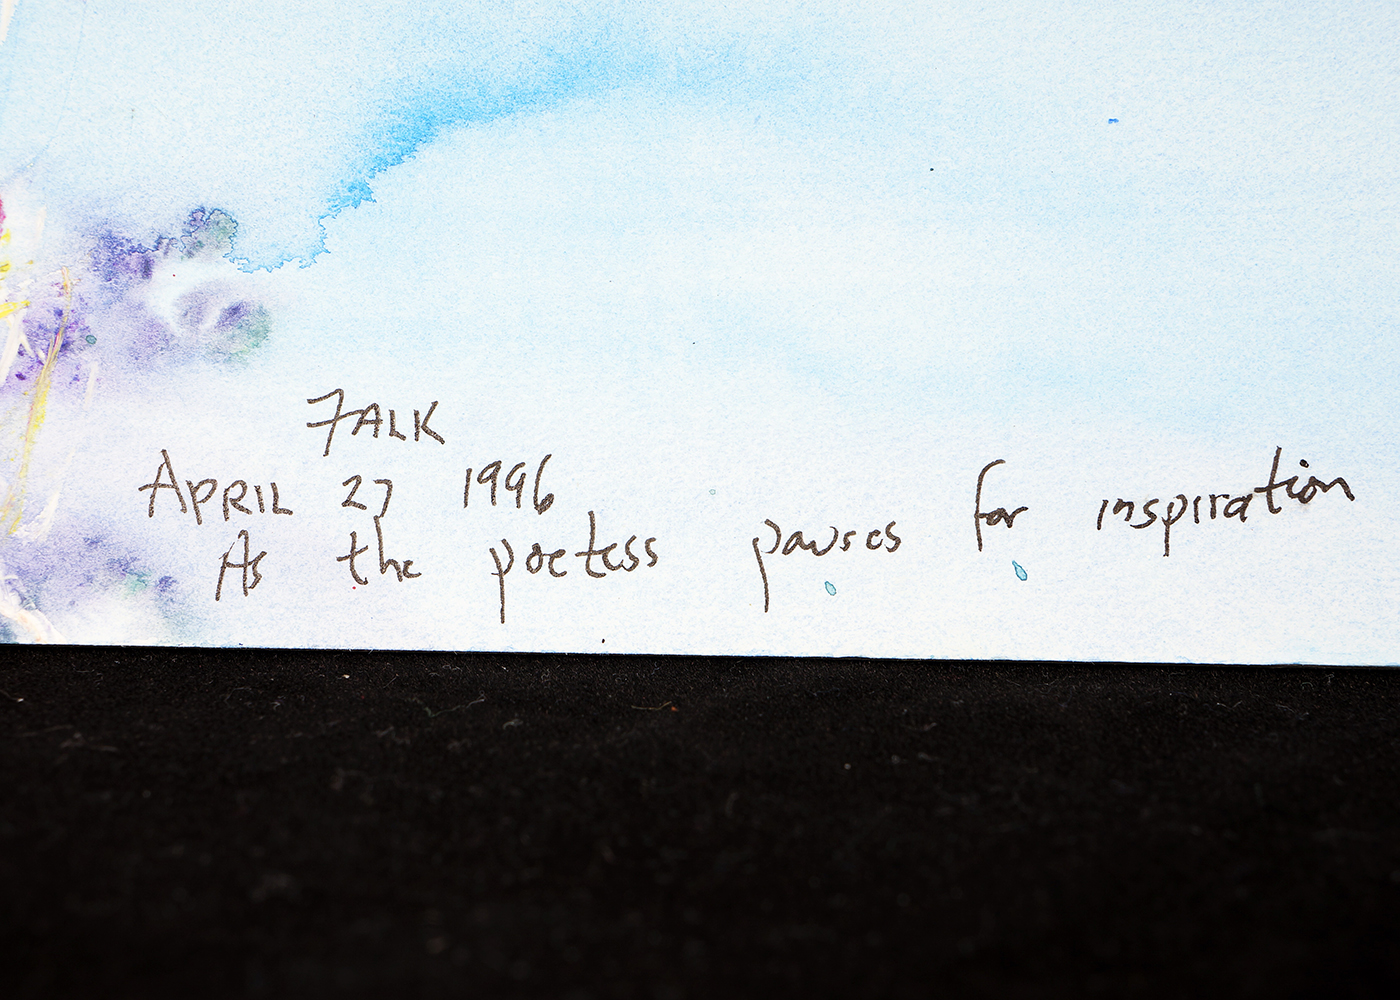 FALK
APRIL 27 1996
As the poetess pauses for inspiration